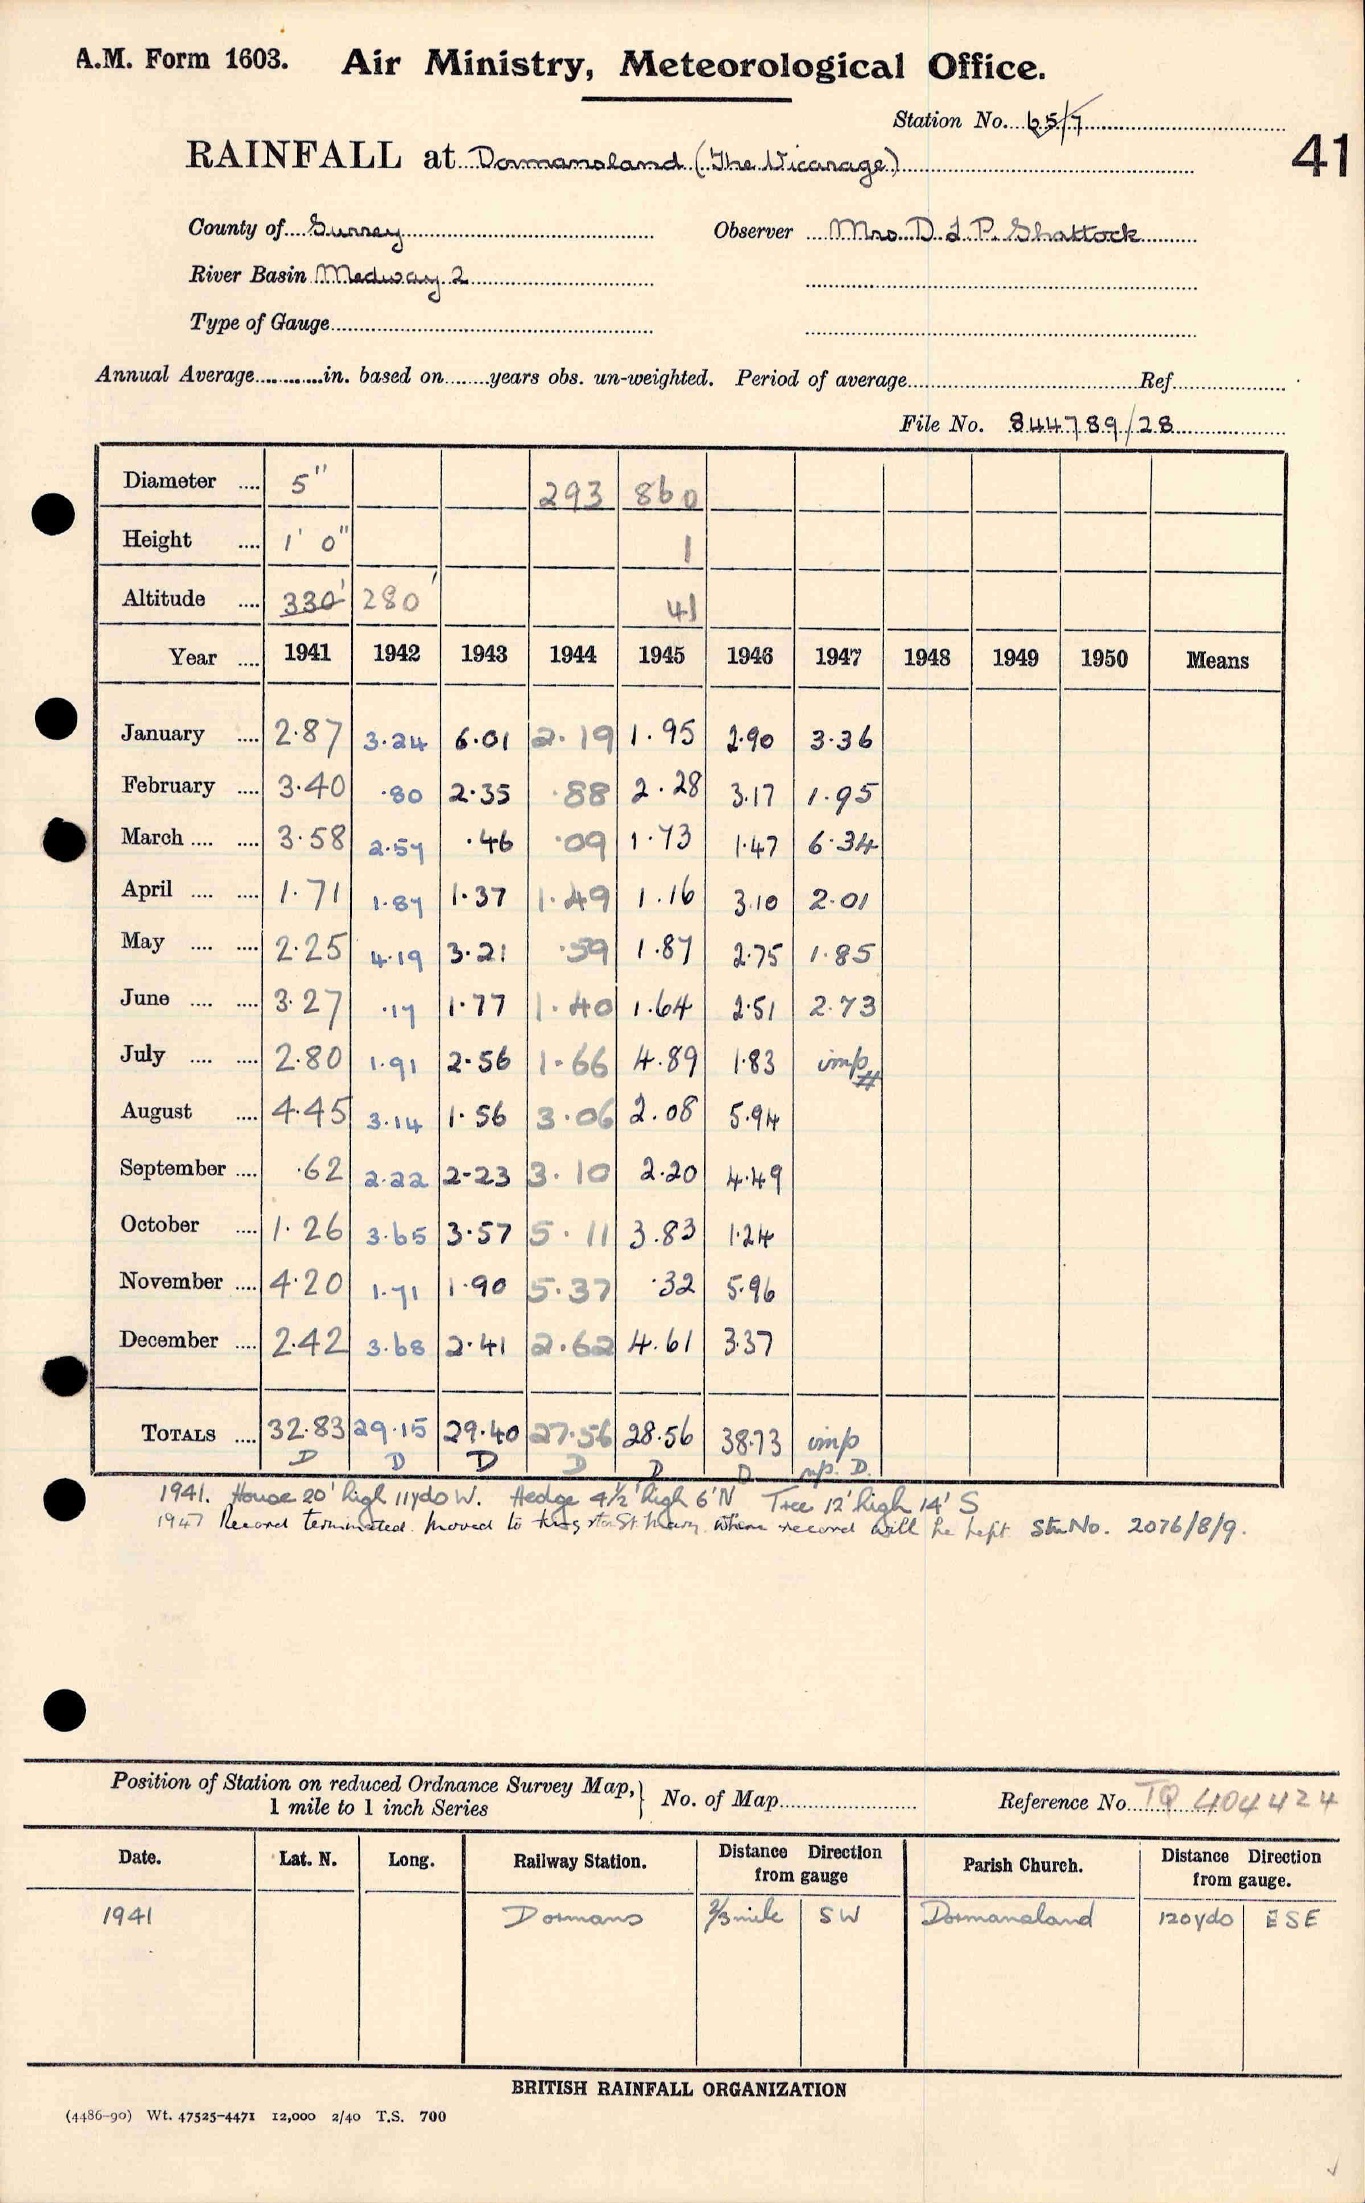 A.M. Form 1603. Air Ministry, Meteorological Office.
Station No. 65/7
41
RAINFALL at Dormansland (The Vicarage)
County of Surrey Observer Mrs D L P Shattock
River Basin Medway 2
Type of Gauge
Annual Average in. based on years obs. un-weighted. Period of average Ref
File No. 844789/28
Diameter 5" 293 860
Height 1' 0" 1
Altitude 330' 280' 41
Year 1941 1942 1943 1944 1945 1946 1947 1948 1949 1950 Means
January 2.87 3.24 6.01 2.19 1.95 2.90 3.36
February 3.40 .80 2.35 .88 2.28 3.17 1.95
March 3.58 2.57 .46 .09 1.73 1.47 6.34
April 1.71 1.87 1.37 1.49 1.16 3.10 2.01
May 2.25 4.19 3.21 .59 1.87 2.75 1.85
June 3.27 .17 1.77 1.40 1.64 2.51 2.73
July 2.80 1.91 2.56 1.66 4.89 1.83 imp #
August 4.45 3.14 1.56 3.06 2.08 5.94
September .62 2.22 2.23 3.10 2.20 4.49
October 1.26 3.65 3.57 5.11 3.83 1.24
November 4.20 1.71 1.90 5.37 .32 5.96
December 2.42 3.68 2.41 2.62 4.61 3.37
TOTALS 32.83 29.15 29.40 27.56 28.56 38.73 imp
D D D D D D np. D.
1941. House 20' high 11yds W. Hedge 4½' high 6' N Tree 12' high 14' S
1947 Record terminated. Moved to St. Mary where record will be kept Stn No. 2076/8/9.
Position of Station on reduced Ordnance Survey Map, 1 mile to 1 inch Series } No. of Map Reference No. TQ 404424
Date. Lat. N. Long. Railway Station. Distance Direction from gauge Parish Church. Distance Direction from gauge.
1941 Dormans 2/3 mile SW Dormansland 120yds ESE
BRITISH RAINFALL ORGANIZATION
(4486-90) Wt. 47525-4471 12,000 2/40 T.S. 700